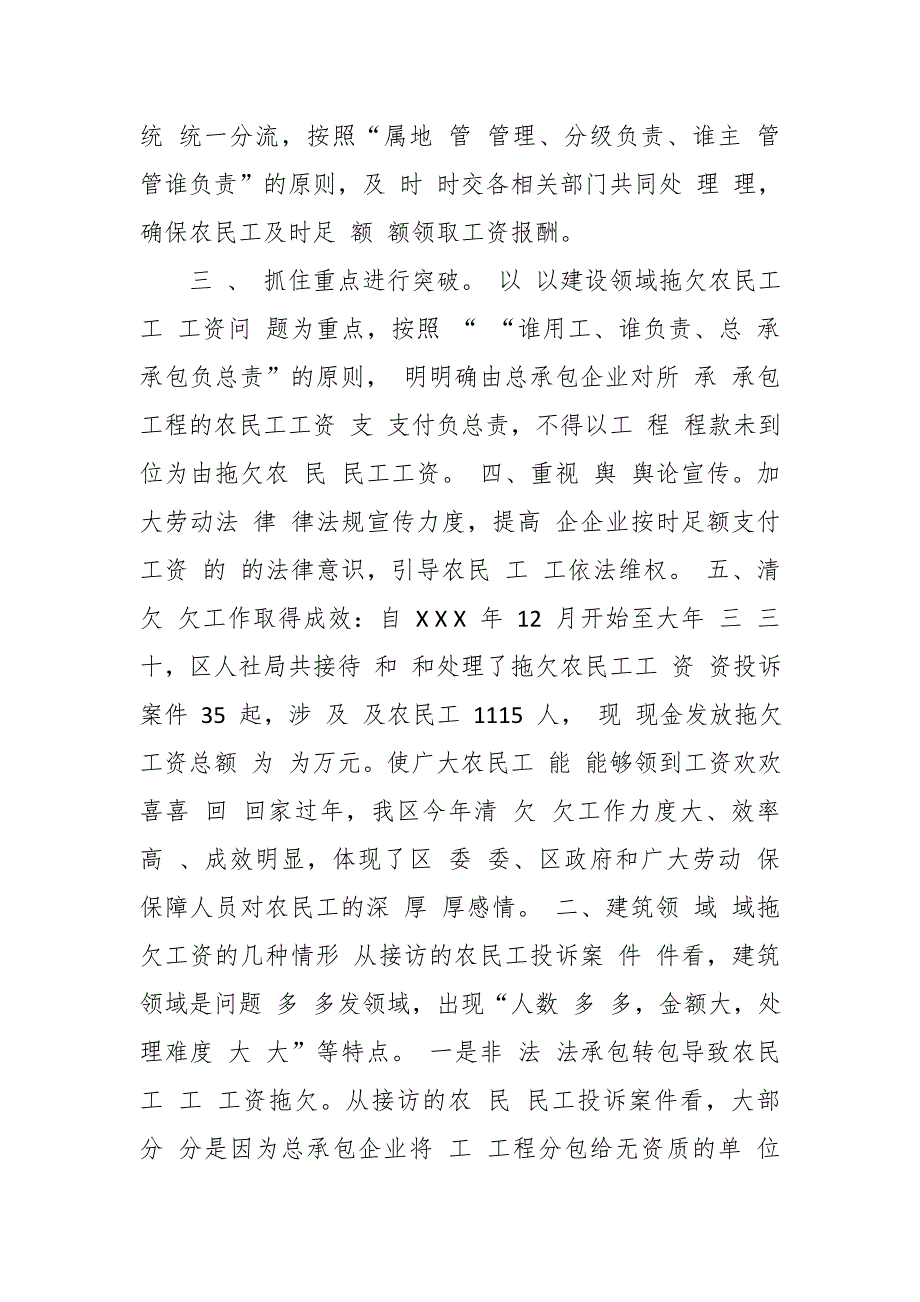 统 统一分流，按照“属地 管 管理、分级负责、谁主 管
管谁负责”的原则，及 时 时交各相关部门共同处 理 理，
确保农民工及时足 额 额领取工资报酬。
三 、 抓住重点进行突破。 以 以建设领域拖欠农民工
工 工资问 题为重点，按照 “ “谁用工、谁负责、总 承
承包负总责”的原则， 明明确由总承包企业对所 承 承包
工程的农民工工资 支 支付负总责，不得以工 程 程款未到
位为由拖欠农 民 民工工资。 四、重视 舆 舆论宣传。加
大劳动法 律 律法规宣传力度，提高 企企业按时足额支付
工资 的 的法律意识，引导农民 工 工依法维权。 五、清
欠 欠工作取得成效：自 XXX 年 12 月开始至大年 三 三
十，区人社局共接待 和 和处理了拖欠农民工工 资 资投诉
案件 35 起，涉 及 及农民工 1115 人， 现 现金发放拖欠
工资总额 为 为万元。使广大农民工 能 能够领到工资欢欢
喜喜 回 回家过年，我区今年清 欠 欠工作力度大、效率
高 、成效明显，体现了区 委 委、区政府和广大劳动 保
保障人员对农民工的深 厚 厚感情。 二、建筑领 域 域拖
欠工资的几种情形 从接访的农民工投诉案 件 件看，建筑
领域是问题 多 多发领域，出现“人数 多 多，金额大，处
理难度 大 大”等特点。 一是非 法 法承包转包导致农民
工 工 工资拖欠。从接访的农 民 民工投诉案件看，大部
分 分是因为总承包企业将 工 工程分包给无资质的单 位